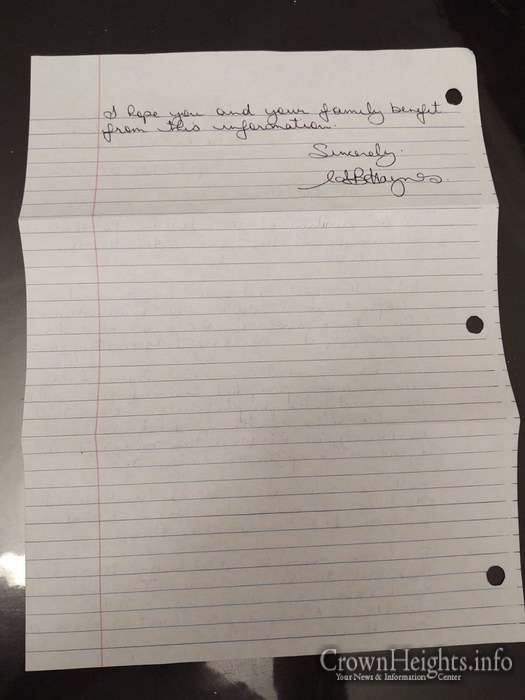 I hope you and your family benefit
from this information.
Sincerely.
CrownHeights.info
Your News & Information Center